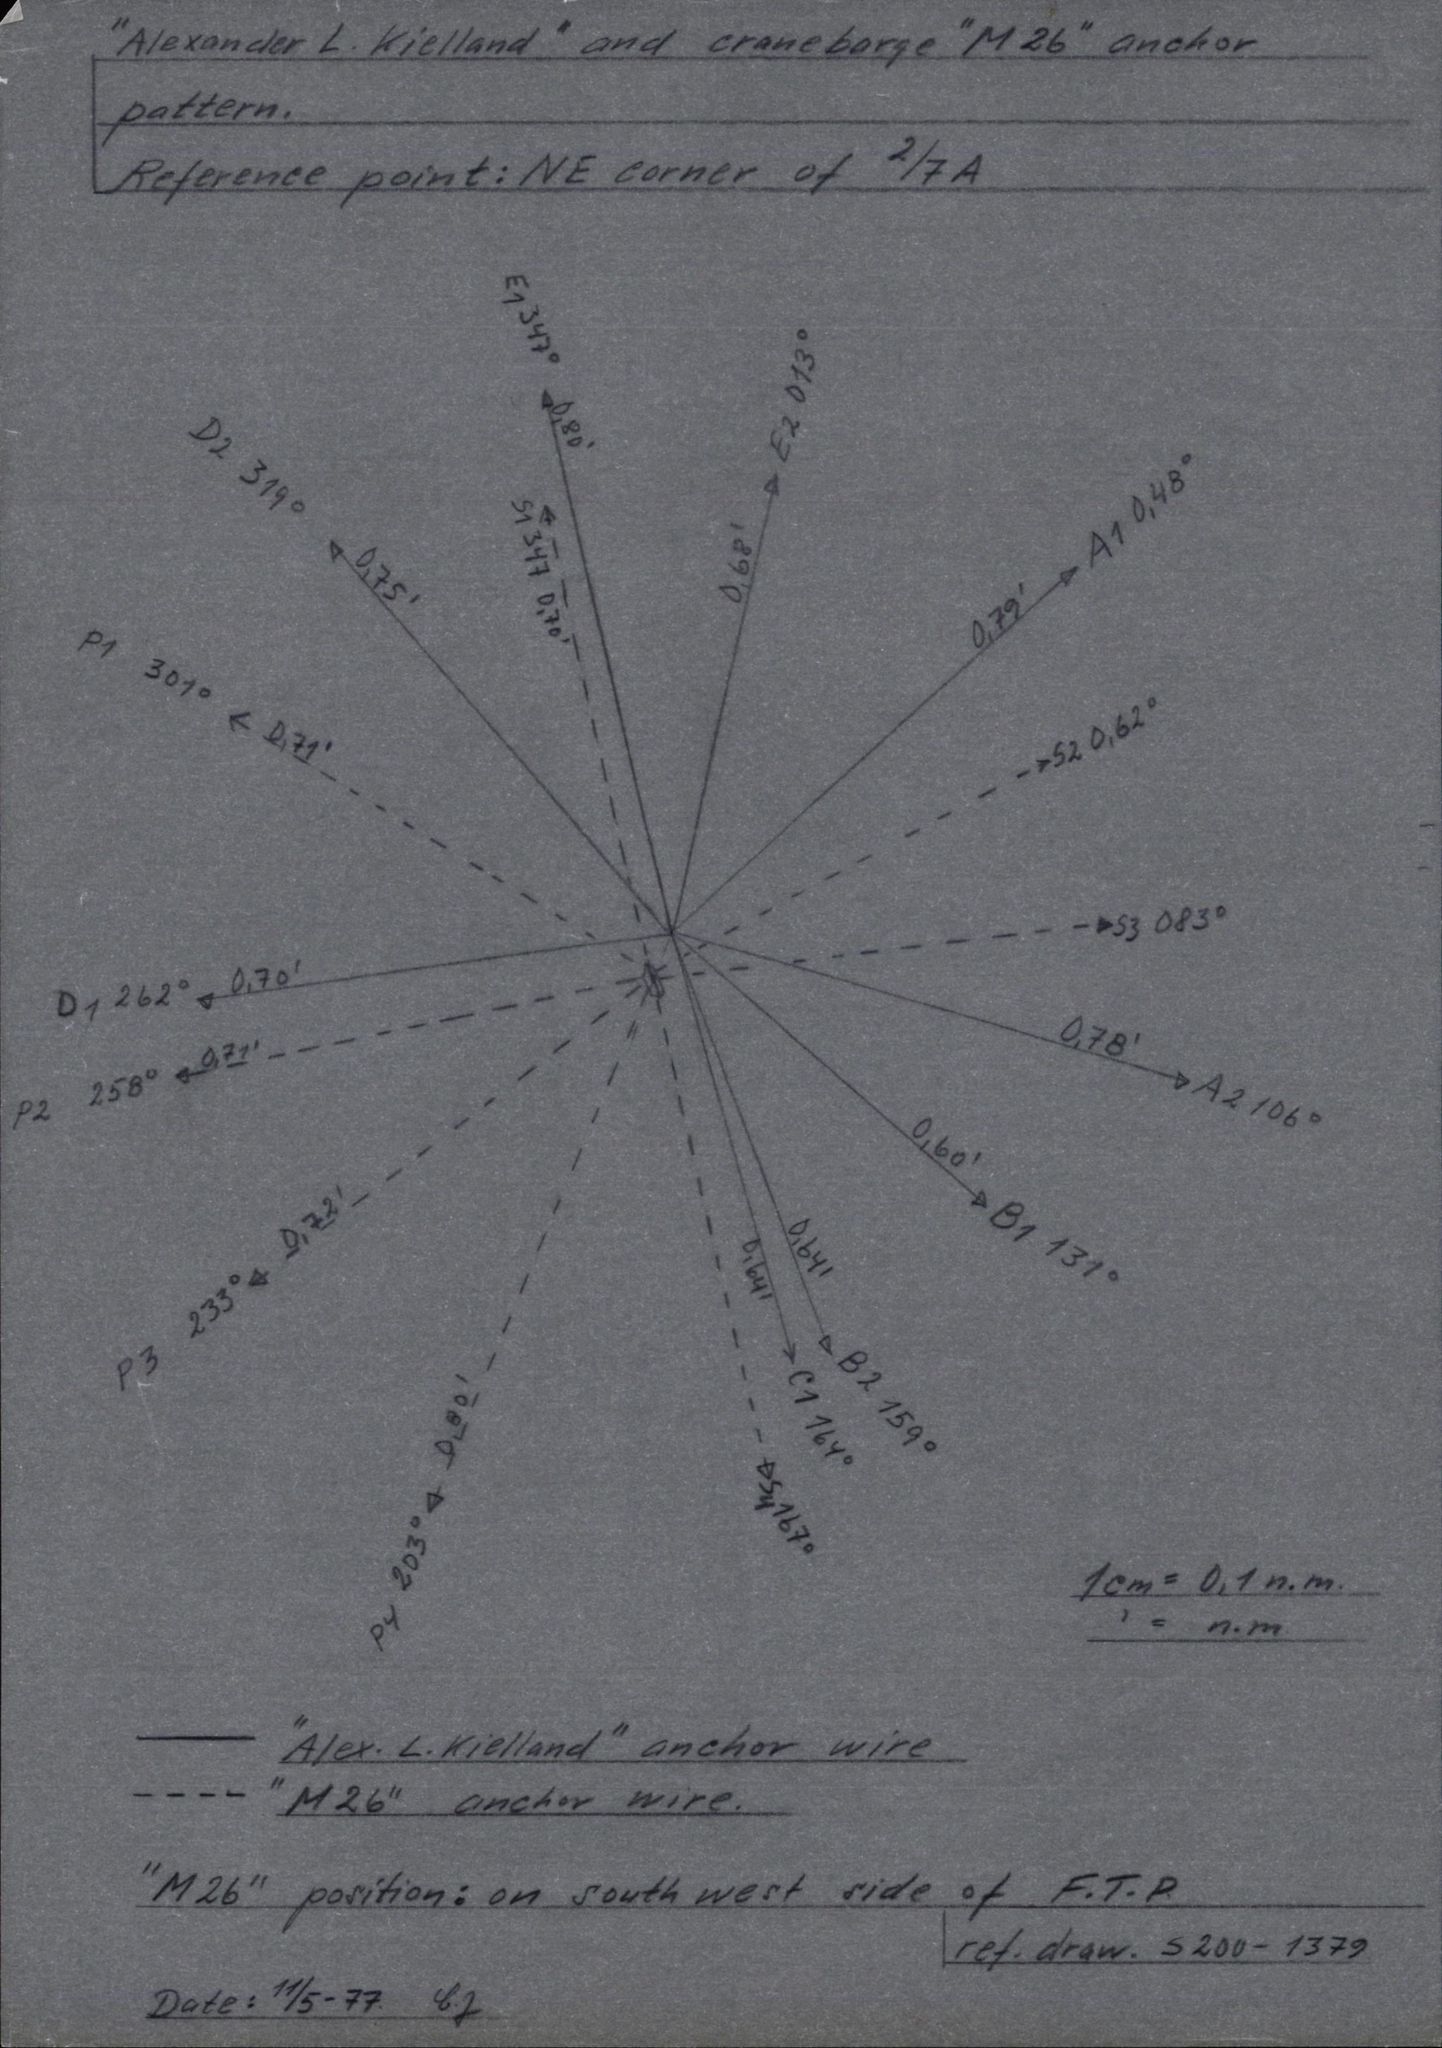 "Alexander L. Kielland" and cranebarge "M26" anchor
pattern.
Reference point: NE corner of 2/7A
E1 347°
0,80'
E2 013°
0,68'
D2 319°
0,75'
S1 347 0,70'
A1 0,48°
0,79'
P1 301°
0,71'
S2 0,62°
S3 083°
D1 262°
0,70'
P2 258°
0,71'
0,78'
A2 106°
0,60'
B1 131°
P3 233°
0,72'
0,64'
0,64'
B2 159°
C1 164°
S4 167°
0,80'
P4 203°
1cm = 0,1 n.m.
' = n.m
"Alex. L. Kielland" anchor wire
"M26" anchor wire.
"M26" position: on south west side of F.T.P.
ref. draw. S200-1379
Date: 11/5-77